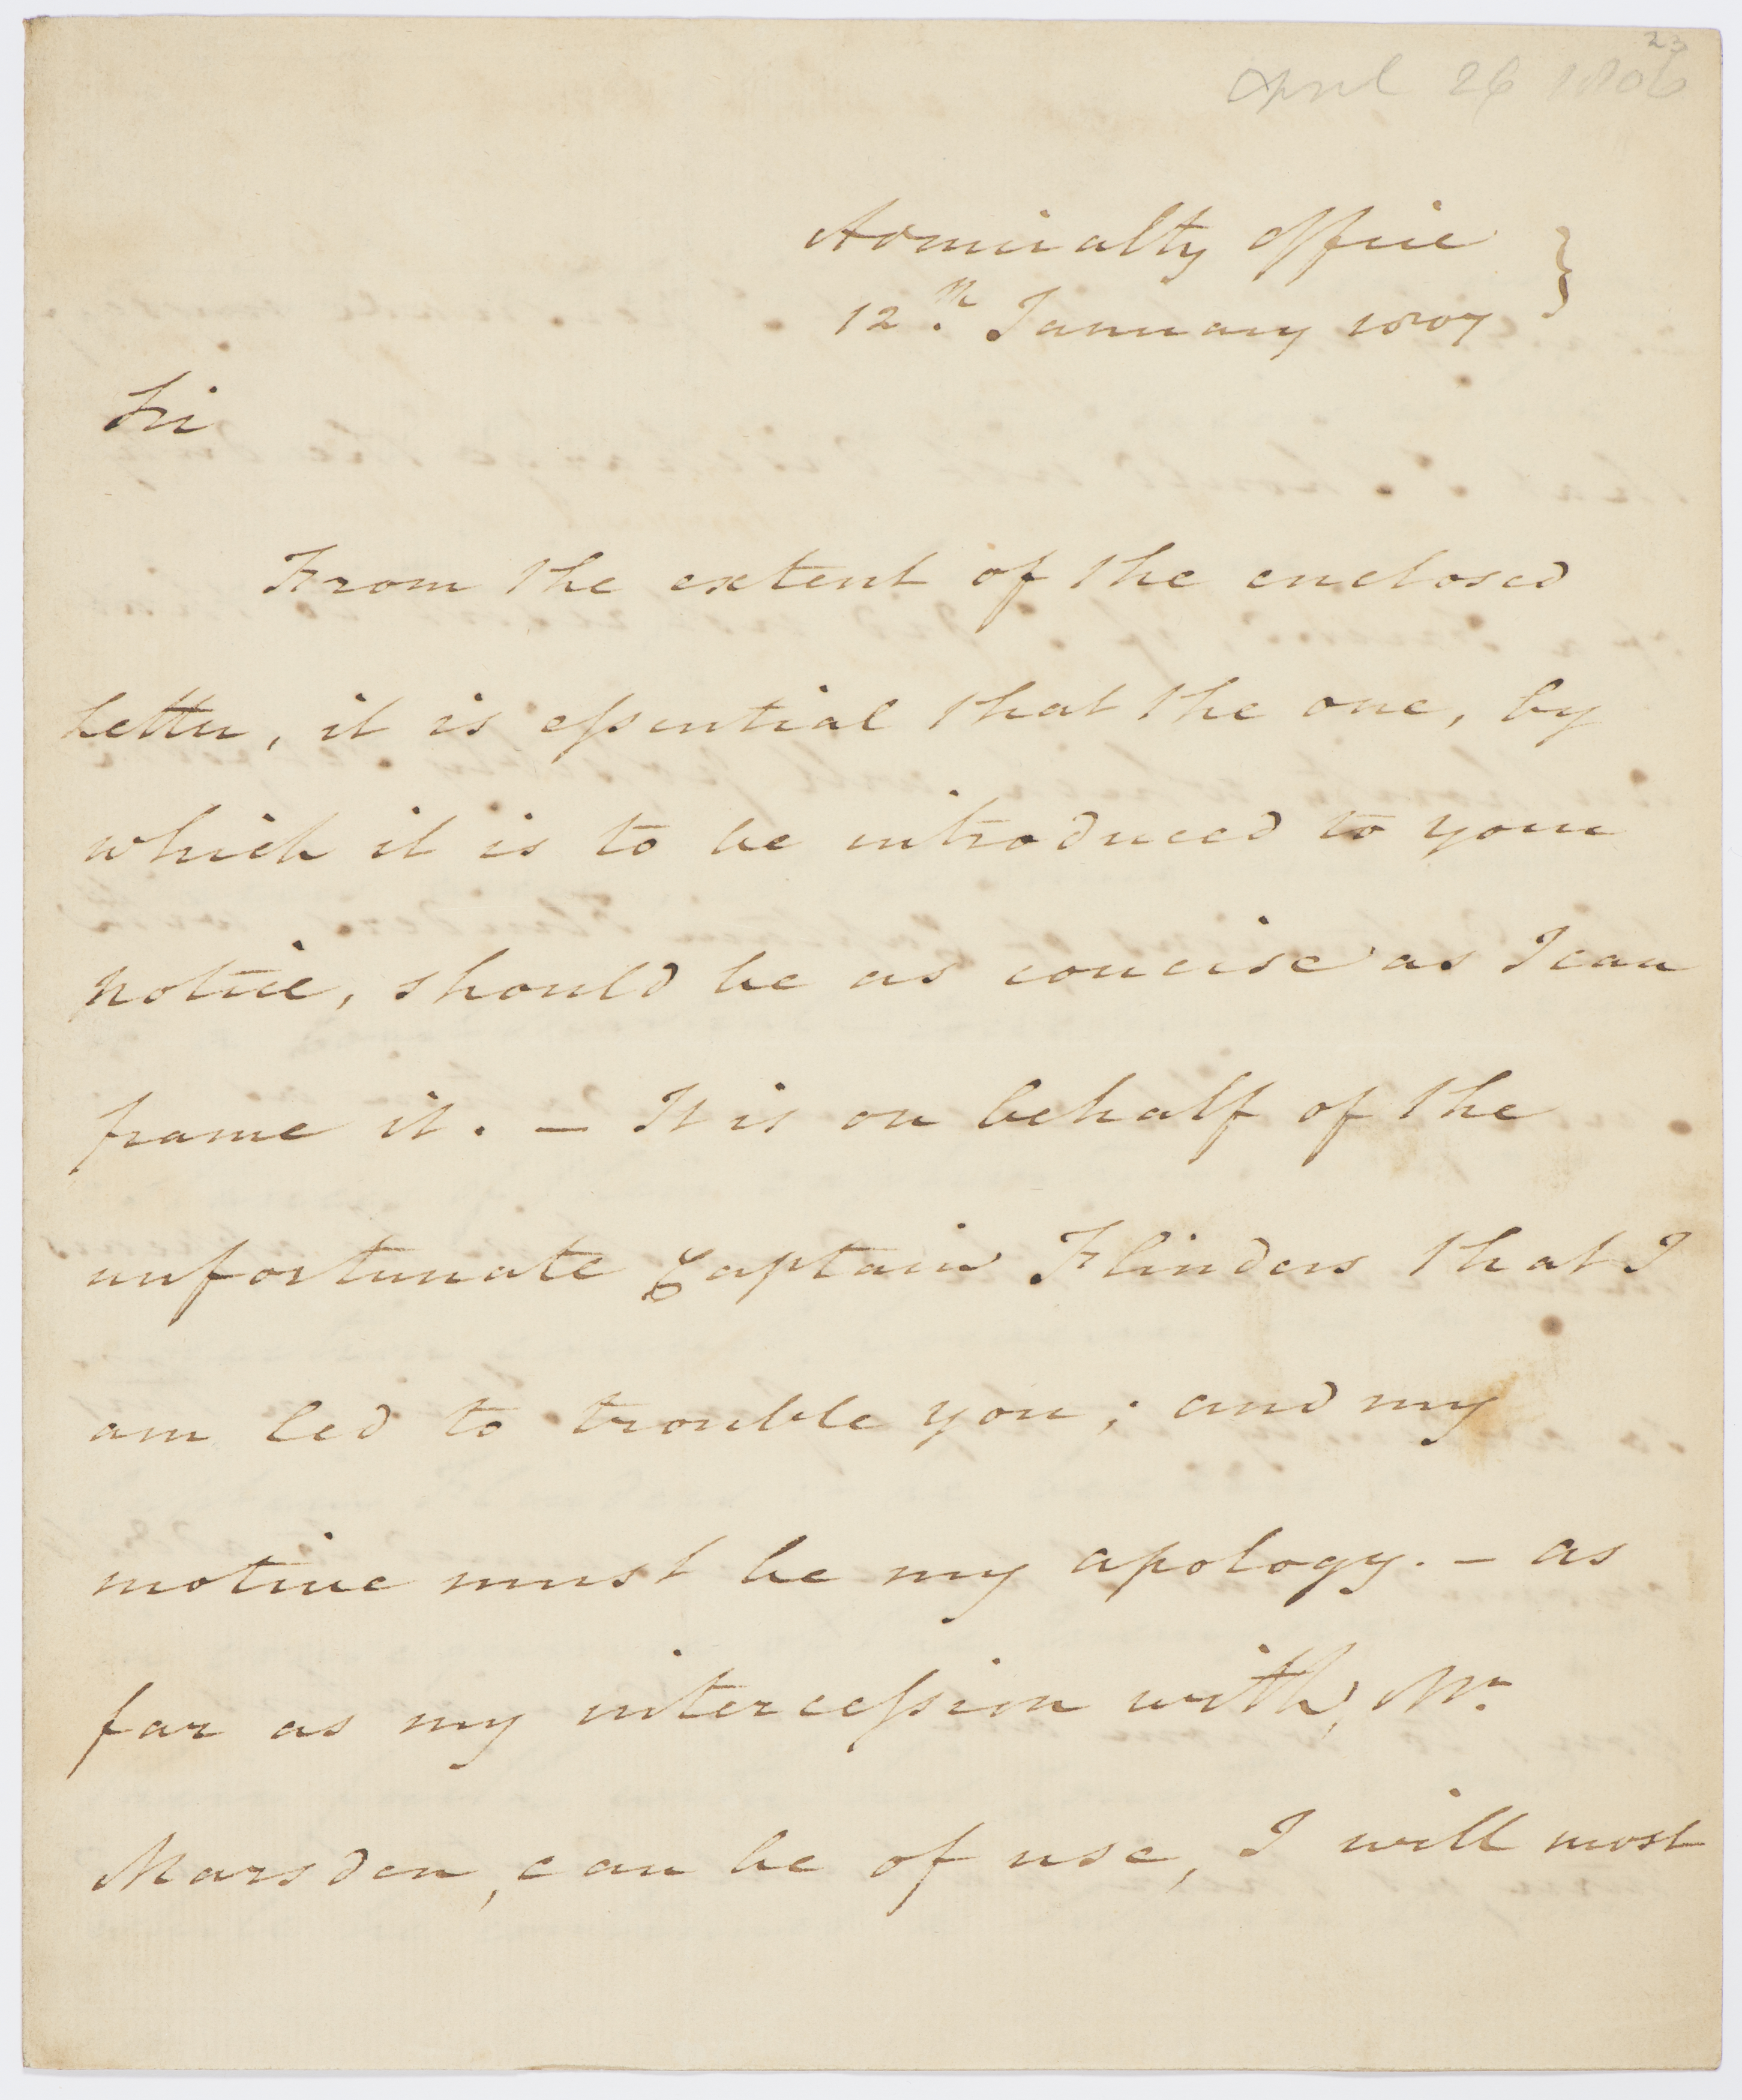 23
April 26 1806
Admiralty Office }
12th January 1807
Sir
From the extent of the enclosed
Letter, it is essential that the one, by
which it is to be introduced to your
notice, should be as concise as I can
frame it. — It is on behalf of the
unfortunate Captain Flinders that I
am led to trouble you; and my
motive must be my apology. — as
far as my intercession with, Mr.
Marsden, can be of use, I will most